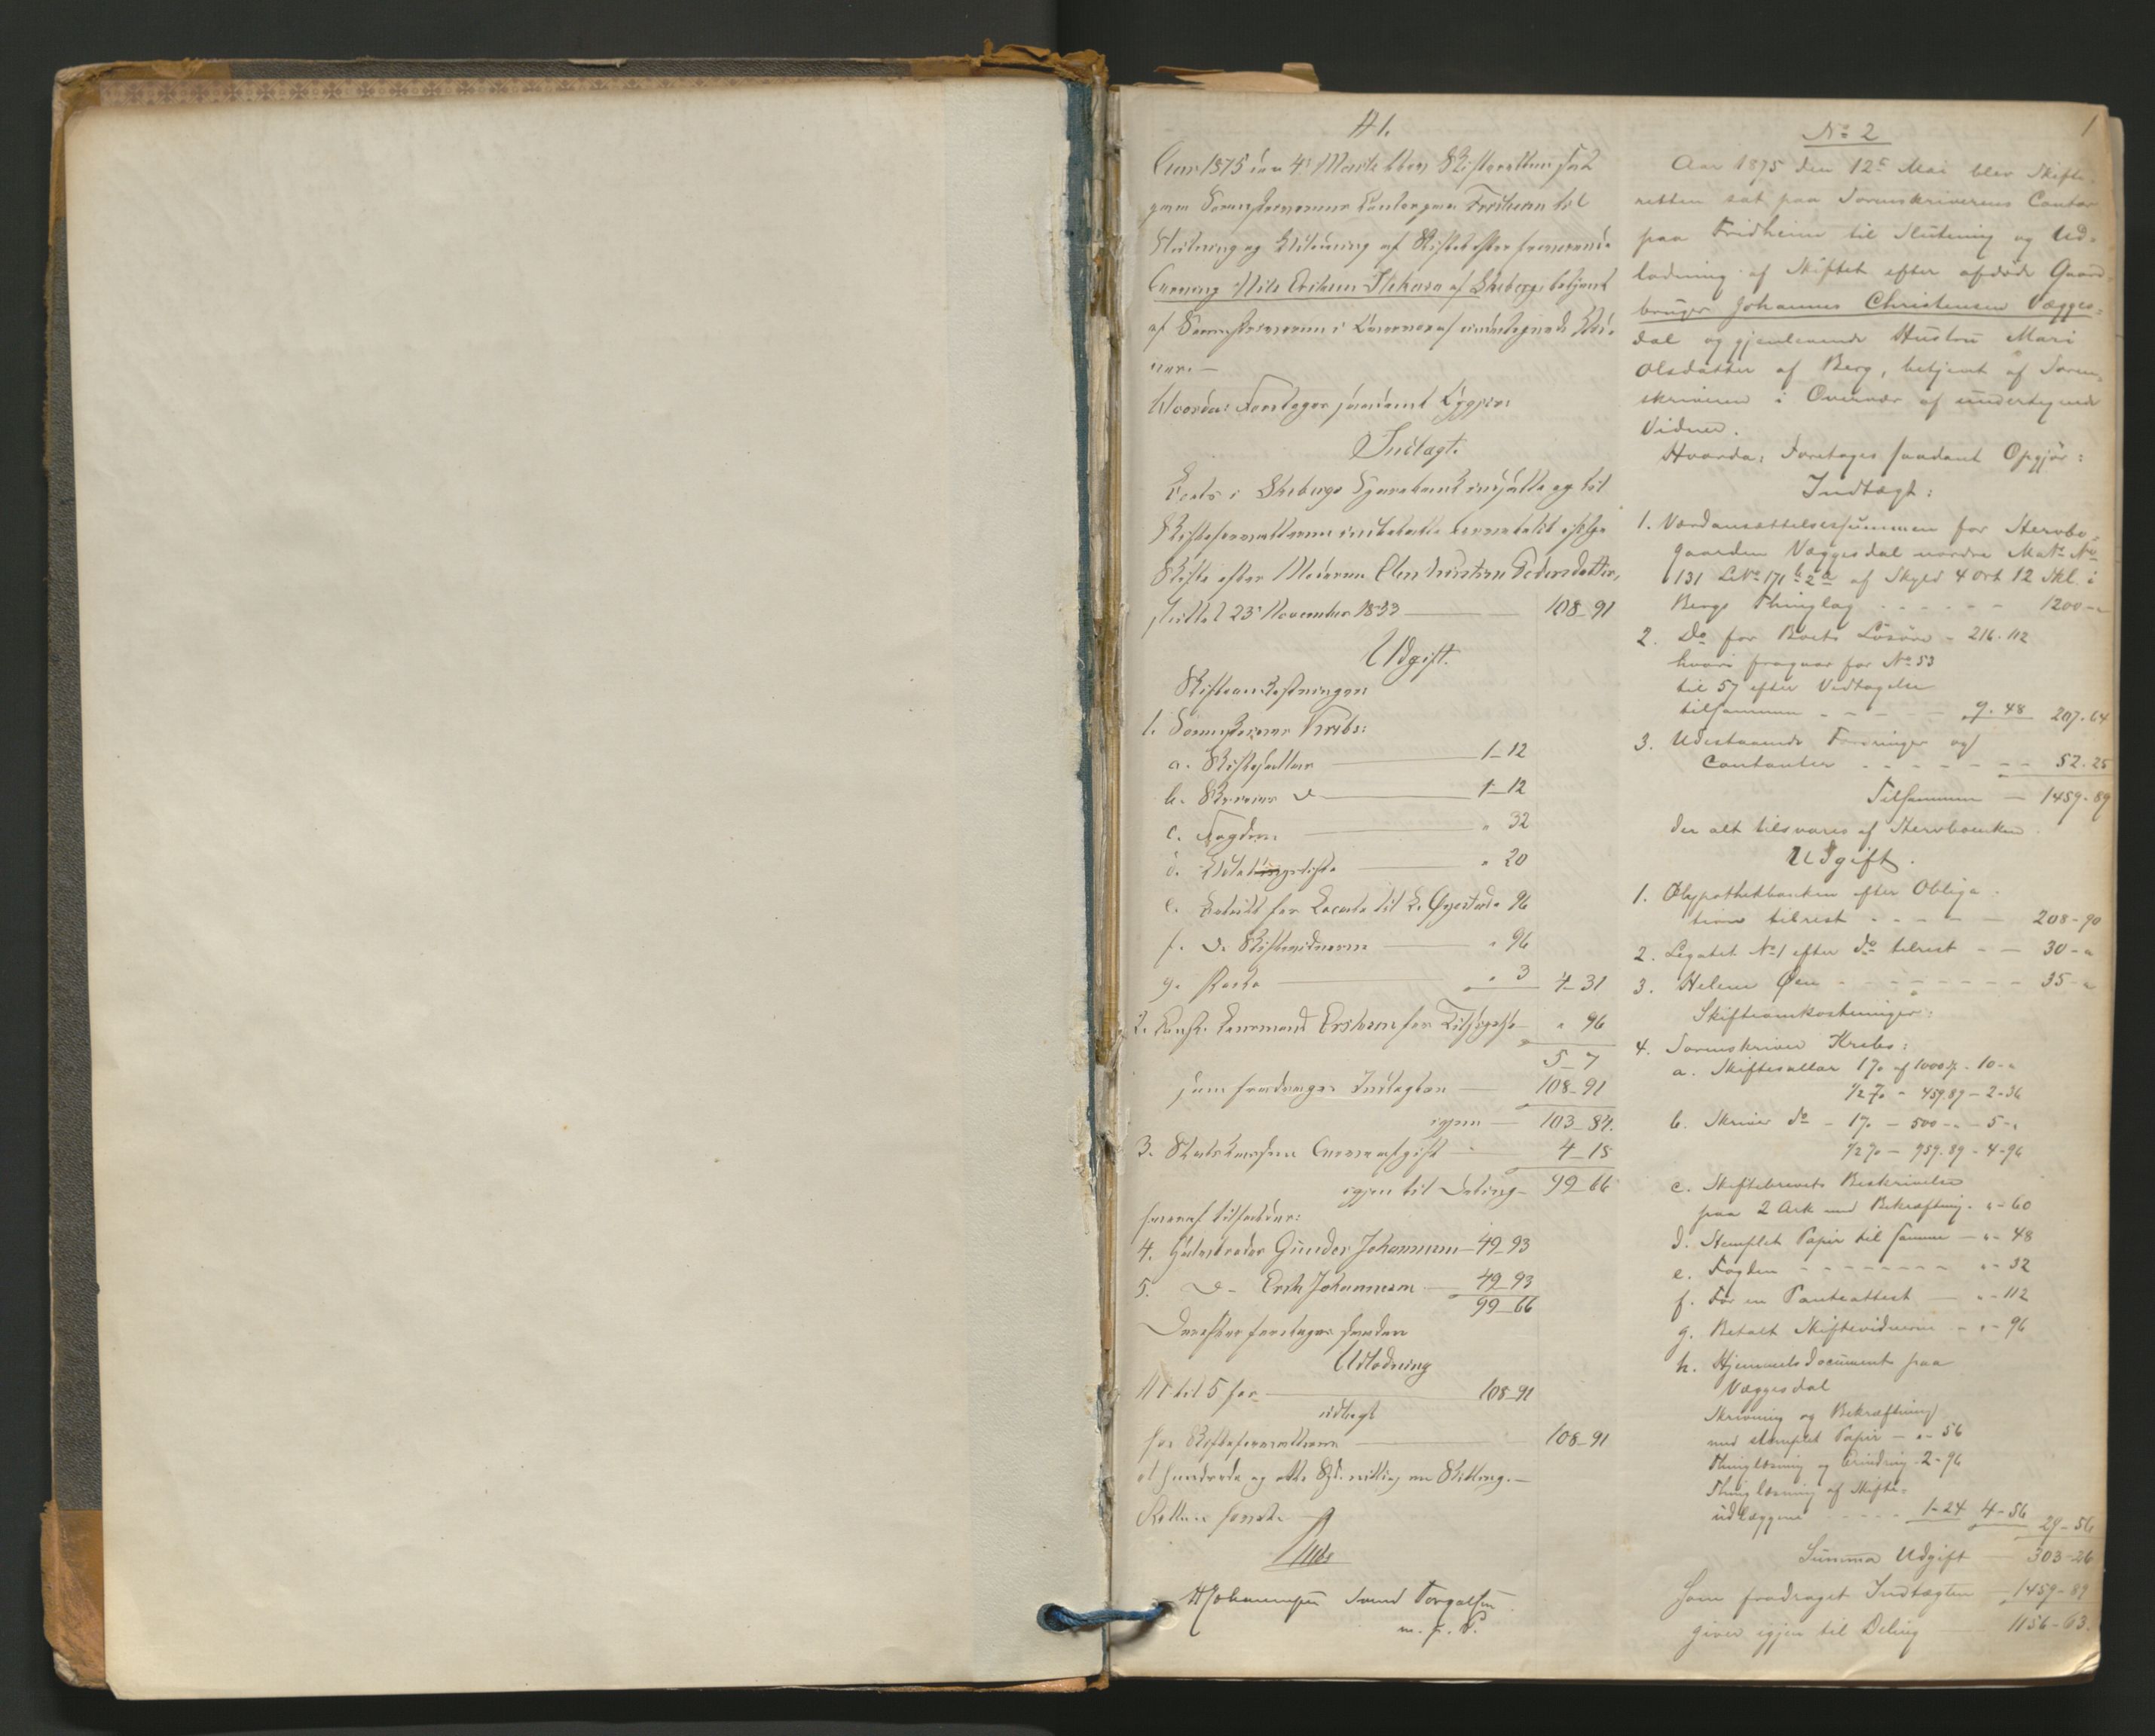 № 1.
Aar 1875 den 4de Marts blev Skifteretten sat
paa Sorenskriverens Contor paa Fridheim til
Slutning og Udlodning af Skiftet efter
Nils Eriksen af Skeberg, betjent
af Sorenskriveren i Overvær af undertegnede Vid-
ner. —
Hvorda: Foretoges saadant Opgjør:
Indtægt.
Boets i Skebergs Sparebank indsatte og til
Skifteforvalteren indbetalte
Skifte efter Moderen Pedersdatter,
sluttet 23de November 108-91
Udgift.
Skifteomkostninger
1. Sorenskriver Krebs:
a. Skiftesallar 1-12
b. Skriver do 1-12
c. Fogden „ 32
d. „ 20
e. Betalt for til 96
f. do Skiftevidnerne „ 96
g. Porto „ 3 4-31
2. Eriksen for „ 96
5-7
som fradrages Indtægten 108-91
igjen — 103-84.
3. Statskassen Arveafgift 4-18
igjen til Deling — 99-66
hvoraf tilfalder:
4. Gunder Johannesen — 49-93
5. do — Erik Johannesen 49-93
99-66
Derefter foretoges saadan
Udlodning
№ 1 til 5 for 108-91
udlagt
hos Skifteforvalteren 108-91
et hundrede og otte Spd. nitti og en Skilling. —
Retten hævet.
Krebs
HJohannesen
m. f. P.
1
№ 2
Aar 1875 den 12te Mai blev Skifte-
retten sat paa Sorenskriverens Contor
paa Fridheim til Slutning og Ud-
lodning af Skiftet efter afdøde Gaard-
bruger Johannes Christensen Vægges-
dal og gjenlevende Hustru Mari
Olsdatter af Berg, betjent af Soren-
skriveren i Overvær af undertegnede
Vidner.
Hvorda: Foretoges saadant Opgjør:
Indtægt:
1. Værdansættelsessummen for Stervbo-
gaarden Væggesdal nordre Matr. No
131 LNo 171 b 2 a af Skyld 4 Ort 12 Skl. i
Bergs Thinglag - - - - - 1200-„
2. Do for Boets Løsøre - 216.112
hvori fragaar for No 53
til 57 efter Vedtagelse
tilsammen - - - 9.48 207.64
3. Udestaaende Fordringer og
Contanter - - - - - - - 52.25
Tilsammen — 1459-89
der alt tilsvares af Stervboenken.
Udgift.
1. Hypothekbanken efter Obliga-
tion tilrest - - - - - 208-90
2. Legatet No 1 efter do tilrest - - 30-„
3. Helene Øen - - - - - - - 35-„
Skifteomkostninger:
4. Sorenskriver Krebs:
a. Skiftesallar 1% af 1000 - 10-„
1/2 % - 459.89 - 2-36
b. Skriver do - 1% - 500-„ - 5-„
1/2 % - 959.89 - 4-96
c. Skiftebrevets Beskrivelse
paa 2 Ark med Bekræftning - „-60
d. Stemplet Papir til samme — „-48
e. Fogden - - - - - - - „-32
f. For en Pantcattest — „-112
g. Betalt Skiftevidnerne - „-96
h. Hjemmelsdocument paa
Væggesdal
Skrivning og Bekræftning
med stemplet Papir — „-56
Thinglæsning og Erindring 2-96
Thinglæsning af Skifte-
udlæggene - - - - 1-24 4-56 29-56
Summa Udgift 303-26
som fradraget Indtægten — 1459-89
giver igjen til Deling 1156-63.